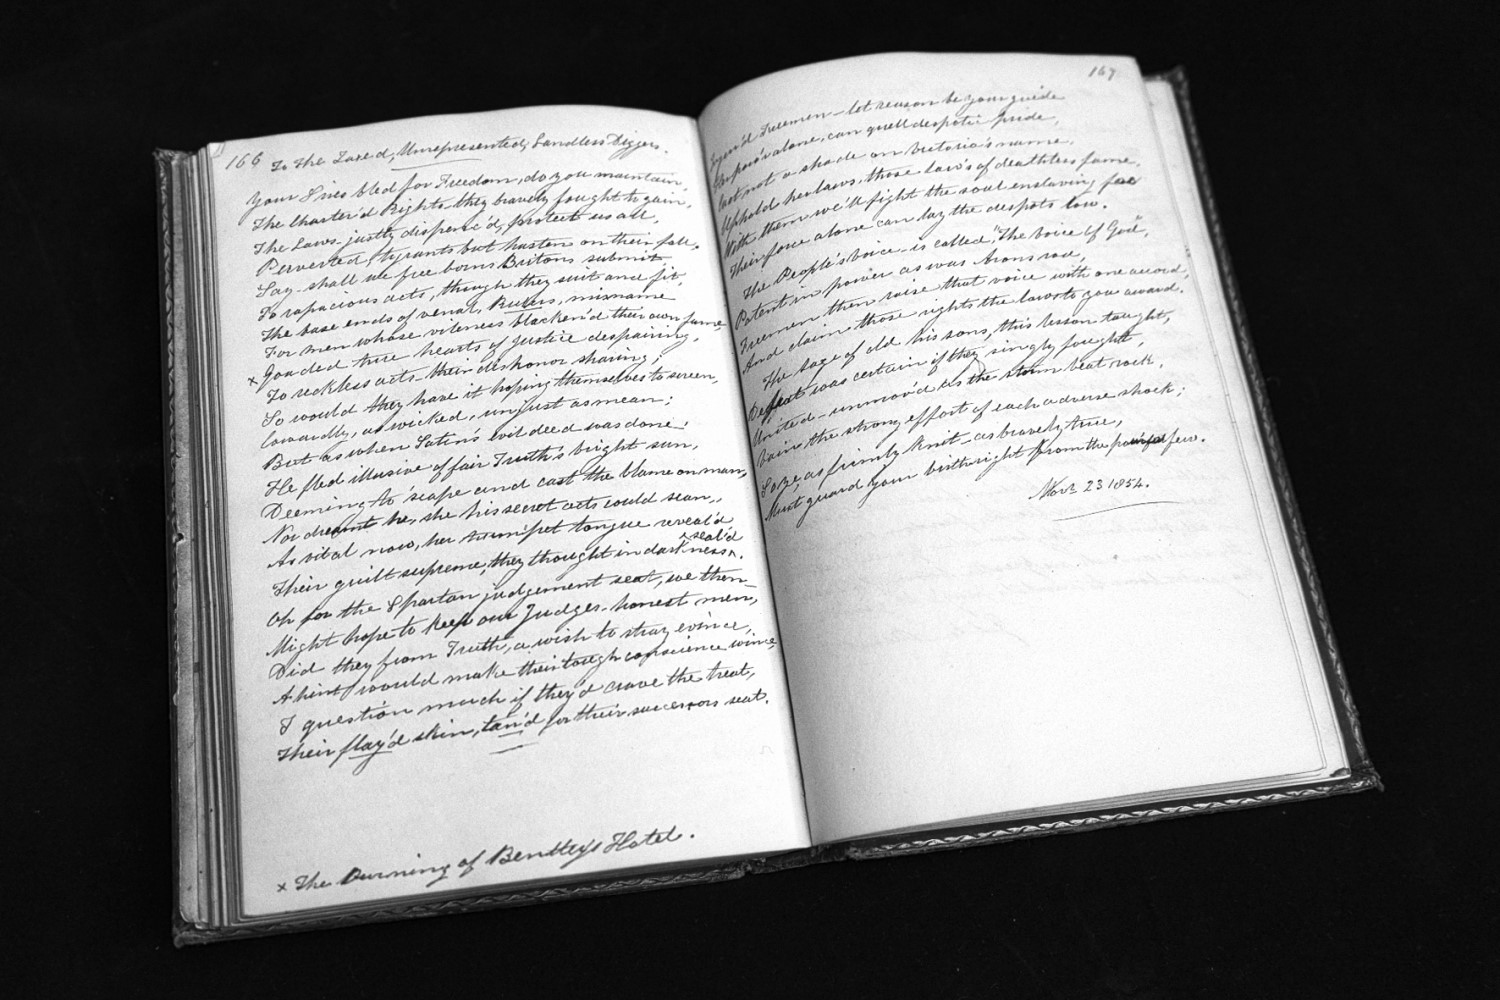 166
To the Taxed, Unrepresented, Landless Diggers.
Your Sires bled for Freedom, do you maintain,
The Charter'd Rights they bravely fought to gain,
The Laws justly dispens'd, protect us all,
Perverted, tyrants but hasten on their fall.
Say shall we free born Britons submit
To rapacious acts, though they suit and fit,
The base ends of venal, Rulers, misname
For men whose vileness blacken'd their own fame,
x Goaded true hearts of justice despairing,
To reckless acts their dishonor sharing;
So would they have it hoping themselves to screen,
Cowardly, as wicked, unjust as mean;
But as when Satin's evil deed was done
He fled illusive of fair Truth's bright sun,
Deeming to 'scape and cast the blame on man,
Nor dreamt he, she his secret acts could scan,
As vital now, her trumpet tongue reveal'd
Their guilt supreme, they thought in darkness ^ seal'd.
Oh for the Spartan judgement seat, we then
Might hope to keep our Judges honest men,
Did they from Truth, a wish to stray evince,
A hint would make their tough conscience wince,
I question much if they'd crave the treat,
Their flay'd skin, tan'd for their successors seat.
x The Burning of Bentley's Hotel.
167
Freemen let reason be your guide
alone, can quell despotic pride,
Cast not a shade on Victoria's name,
Uphold her laws, those laws of deathless fame,
With them we'll fight the soul enslaving foe
Their force alone can lay the despots low.
The People's voice is called, 'The voice of God',
Potent in power as was Arons rod,
Freemen then raise that voice with one accord,
And claim those rights the laws to you award.
The Sage of old his sons, this lesson taught,
Defeat was certain if they singly fought,
United unmov'd as the storm beat rock,
Vain the strong effort of each adverse shock;
So ye, as firmly knit as bravely true,
Must guard your birthright from the few.
Novr. 23 1854.